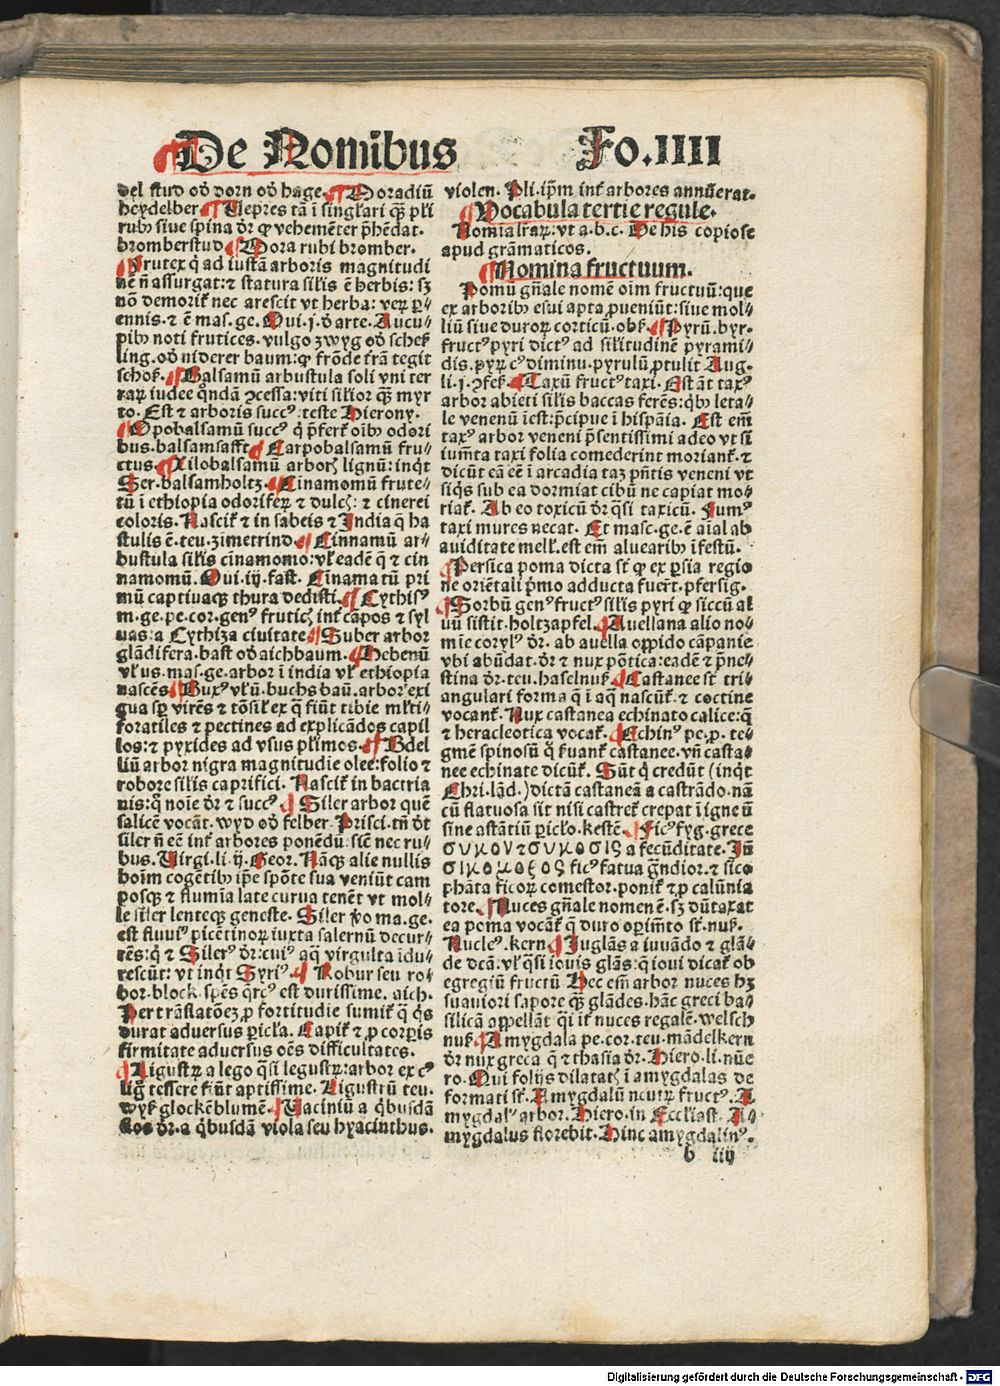 De Nomībus Fo.IIII
del stud oď dorn oď hage. Moradiū
heydelber Uepres tā ī singl'ari qꝫ pl'i
rubꝰ siue spina ďr ꝙ vehemēter p̄hēdat.
bromberstud Mora rubi bromber.
Frutex q̇ ad iustā arboris magnitudi
nē n̄ assurgat: ⁊ statura sil'is ē herbis: sꝫ
nō demorit̄ nec arescit vt herba: veꝝ ꝑ⸗
ennis. ⁊ ē mas. ge. Oui. j. ď arte. Aucu⸗
pibꝰ noti frutices. vulgo zwyg oď schoß
ling. oď niderer baum: ꝙ frōde t̄rā tegit
schoß. Balsamū arbustula soli vni ter
raꝝ iudee q̄ndā ꝯcessa: viti silior qꝫ myr
to. Est ⁊ arboris succꝰ: teste Hierony.
Opobalsamū succꝰ q̇ p̄fert̄ oībꝰ odori
bus. balsamsafft Carpobalsamū fru⸗
ctus. Xilobalsamū arborꝭ lignū: inq̇t
Ser. balsamholtz. Cinamomū frute⸗
tū ī ethiopia odoriferꝝ ⁊ dulcꝭ: ⁊ cinerei
coloris. Nascit̄ ⁊ in sabeis ⁊ India q̄ ha
stulis ē. teu. zimetrind. Cinnamū ar⸗
bustula sil'is cīnamomo: vl' eadē q̄ ⁊ cin
namomū. Oui. iij. fast. Cinama tū pri
mū captiuaqꝫ thura dedisti. Cythisꝰ
m. ge. pe. cor. genꝰ fruticꝭ int̄ cāpos ⁊ syl
uas: a Cythiza ciuitate Suber arbor
glādifera. bast oď aichbaum. Hebenū
vl' us. mas. ge. arbor ī india vl' ethiopia
nascēs Buxꝰ vl' ū. buchs baū. arborˀ exi
gua sꝑ virēs ⁊ tōsil' ex q̄ fiūt tibie ml'ti⸗
foratiles ⁊ pectines ad explicādos capil
los: ⁊ pyxides ad vsus pl'imos. Bdel
liū arbor nigra magnitudie olee: folio ⁊
robore sil'is caprifici. Nascit̄ in bactria
nis: q̄ noīe ďr ⁊ succꝰ Siler arbor quē
salicē vocāt. wyd oď felber Prisci. tn̄ ďt
siler n̄ eē int̄ arbores ponēdū: sic̄ nec ru⸗
bus. Uirgi. li. ij. Geor. Nāqꝫ alie nullis
hoīm cogētibꝰ ip̄e spōte sua veniūt cam
posqꝫ ⁊ flumīa late curua tenēt vt mol⸗
le siler lenteqꝫ geneste. Siler v̊o ma. ge.
est fluuiꝰ picētinoꝝ iuxta salernū decur⸗
rēs: q̇ ⁊ Silerꝰ ďr: cuiꝰ aq̄ virgulta īdu⸗
rescūt: vt inq̇t Syriꝰ. Robur seu ro⸗
bor. block. spēs qrcꝰ est durissime. aich.
Per trāslatōeꝫ ꝓ fortitudie sumit̄ q̄ q̇s
durat aduersus pericl'a. Capit̄ ⁊ ꝓ corpis
firmitate aduersus oēs difficultates.
Ligustꝝ a lego q̄si legustꝝ: arbor ex cꝰ
ligͦ tessere fiūt aptissime. Ligustrū teu.
wyß glockēblumē. Uaciniū a q̇busdā
flos ďr. a q̇busdā viola seu hyacinthus.
violen. Pli. ip̄m int̄ arbores annūerat.
Vocabula tertie regule.
Nomīa lr̄aꝝ: vt a. b. c. De his copiose
apud grāmaticos.
Nomina fructuum.
Pomū gn̄ale nomē oīm fructuū: que
ex arboribꝰ esui apta ꝓueniūt: siue mol⸗
liū siue duroꝝ corticū. obß. Pyrū. byr.
fructꝰ pyri dictꝰ ad sil'itudinē pyrami⸗
dis. pyꝝ cꝰ diminu. pyrulū ꝓtulit Aug.
li. j. ꝯfeß. Taxū fructꝰ taxi. Est āt taxꝰ
arbor abieti sil'is baccas ferēs: q̇bꝰ leta⸗
le venenū īest: p̄cipue ī hispāia. Est em̄
taxꝰ arbor veneni p̄sentissimi adeo vt si
iumēta taxi folia comederint moriant̄. ⁊
dicūt eā eē ī arcadia taꝫ p̄ntis veneni vt
siq̇s sub ea dormiat cibū ne capiat mo⸗
riat̄. Ab eo toxicū ďr q̄si taxicū. Fumꝰ
taxi mures necat. Et masc. ge. ē aīal ab
auiditate mell'. est em̄ aluearibꝰ īfestū.
Persica poma dicta st̄ ꝙ ex ꝑsia regio
ne oriētali p̄mo adducta fuer̄t. pfersig.
Sorbū genꝰ fructꝰ sil'is pyri ꝙ siccū al
uū sistit. holtzapfel. Auellana alio no⸗
mīe corylꝰ ďr. ab auella oppido cāpanie
vbi abūdat. ďr ⁊ nux pōtica: eadē ⁊ p̄ne⸗
stina ďr. teu. haselnuß. Castanee st̄ tri⸗
angulari forma q̄ ī aq̄ nascūt̄. ⁊ coctine
vocant̄. Nux castanea echinato calice: q̄
⁊ heracleotica vocat̄. Echinꝰ pe. p. te⸗
gmē spinosū q̇ ẜuant̄ castanee. vn̄ casta⸗
nee echinate dicūt̄. Sūt q̇ credūt (inq̇t
Chri. lād.) dictā castaneā a castrādo. nā
cū flatuosa sit nisi castret̄ crepat ī igne ū
sine astātiū pericl'o. kestē. Ficꝰ fyg. grece
συκον ⁊ συκοσις a fecūditate. In̄
σικομορος ficꝰ fatua grn̄dior. ⁊ sico
phāta ficoꝝ comestor. ponit̄ ⁊ ꝓ calūnia
tore. Nuces gn̄ale nomen ē. sꝫ dūtaxat
ea poma vocāt̄ q̄ duro opimēto st̄. nuß.
Nucleꝰ. kern Juglās a iuuādo ⁊ glā⸗
de dcā: vl' q̄si iouis glās: q̄ ioui dicat̄ ob
egregiū fructū Hec em̄ arbor nuces hꝫ
suauiori sapore qꝫ glādes. hāc greci ba⸗
silicā appellāt q̄i it̄ nuces regalē. welsch
nuß. Amygdala pe. cor. teu. mādelkern
ďr nux greca q̄ ⁊ thasia ďr. Hiero. li. nūe
ro. Qui folijs dilatatꝭ ī amygdalas de
formati st̄. Amygdalū neutꝝ fructꝰ. A
mygdalꝰ arbor. Hiero. in Eccl'iast. A⸗
mygdalus florebit. Hinc amygdalinꝰ.
b iiij
Digitalisierung gefördert durch die Deutsche Forschungsgemeinschaft - DFG